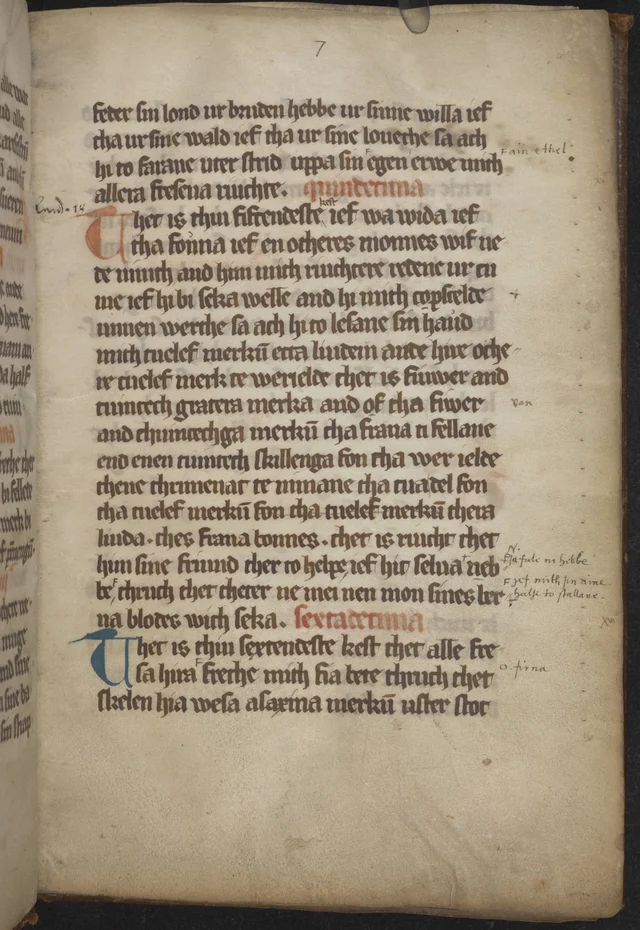 7
feder sin lond ur bruden hebbe ur sinne willa ief
tha ur sine wald ief tha ur sine louethe sa ach
hi to farane uter strid uppa sin egen erwe mith
allera fresena riuchte. quindecima
Thet is thiu fiftendeste kest ief wa wida ief
tha fomna ief en otheres monnes wif ne
de mith and hini mith riuchtere redene ur tiu
ne ief hi bi seka welle and hi mith copstelde
unnen werthe sa ach hi to lesane sin haud
mith tuelef merkū etta liudem ande hire othe
re tuelef merk te werielde thet is fiuwer and
tuintech gratera merka and of tha fiwer
and thuintechga merkū tha frana ti fellane
end enen tuintech skillenga fon tha wer ielde
thene thrimenat te minane tha tuadel fon
tha tuelef merkū fon tha tuelef merkū thera
liuda. thes frana bonnes. thet is riucht thet
him sine friund ther to helpe ief hit selua neb
be thruch thet thetter ne mei nen mon sines ber
na blodes with seka. sextadecima
Thet is thiu sextendeste kest thet alle fre
sa hira frethe mith fia bete thruch thet
skelen hia wesa asaxina merkū uster stor
ain ethel